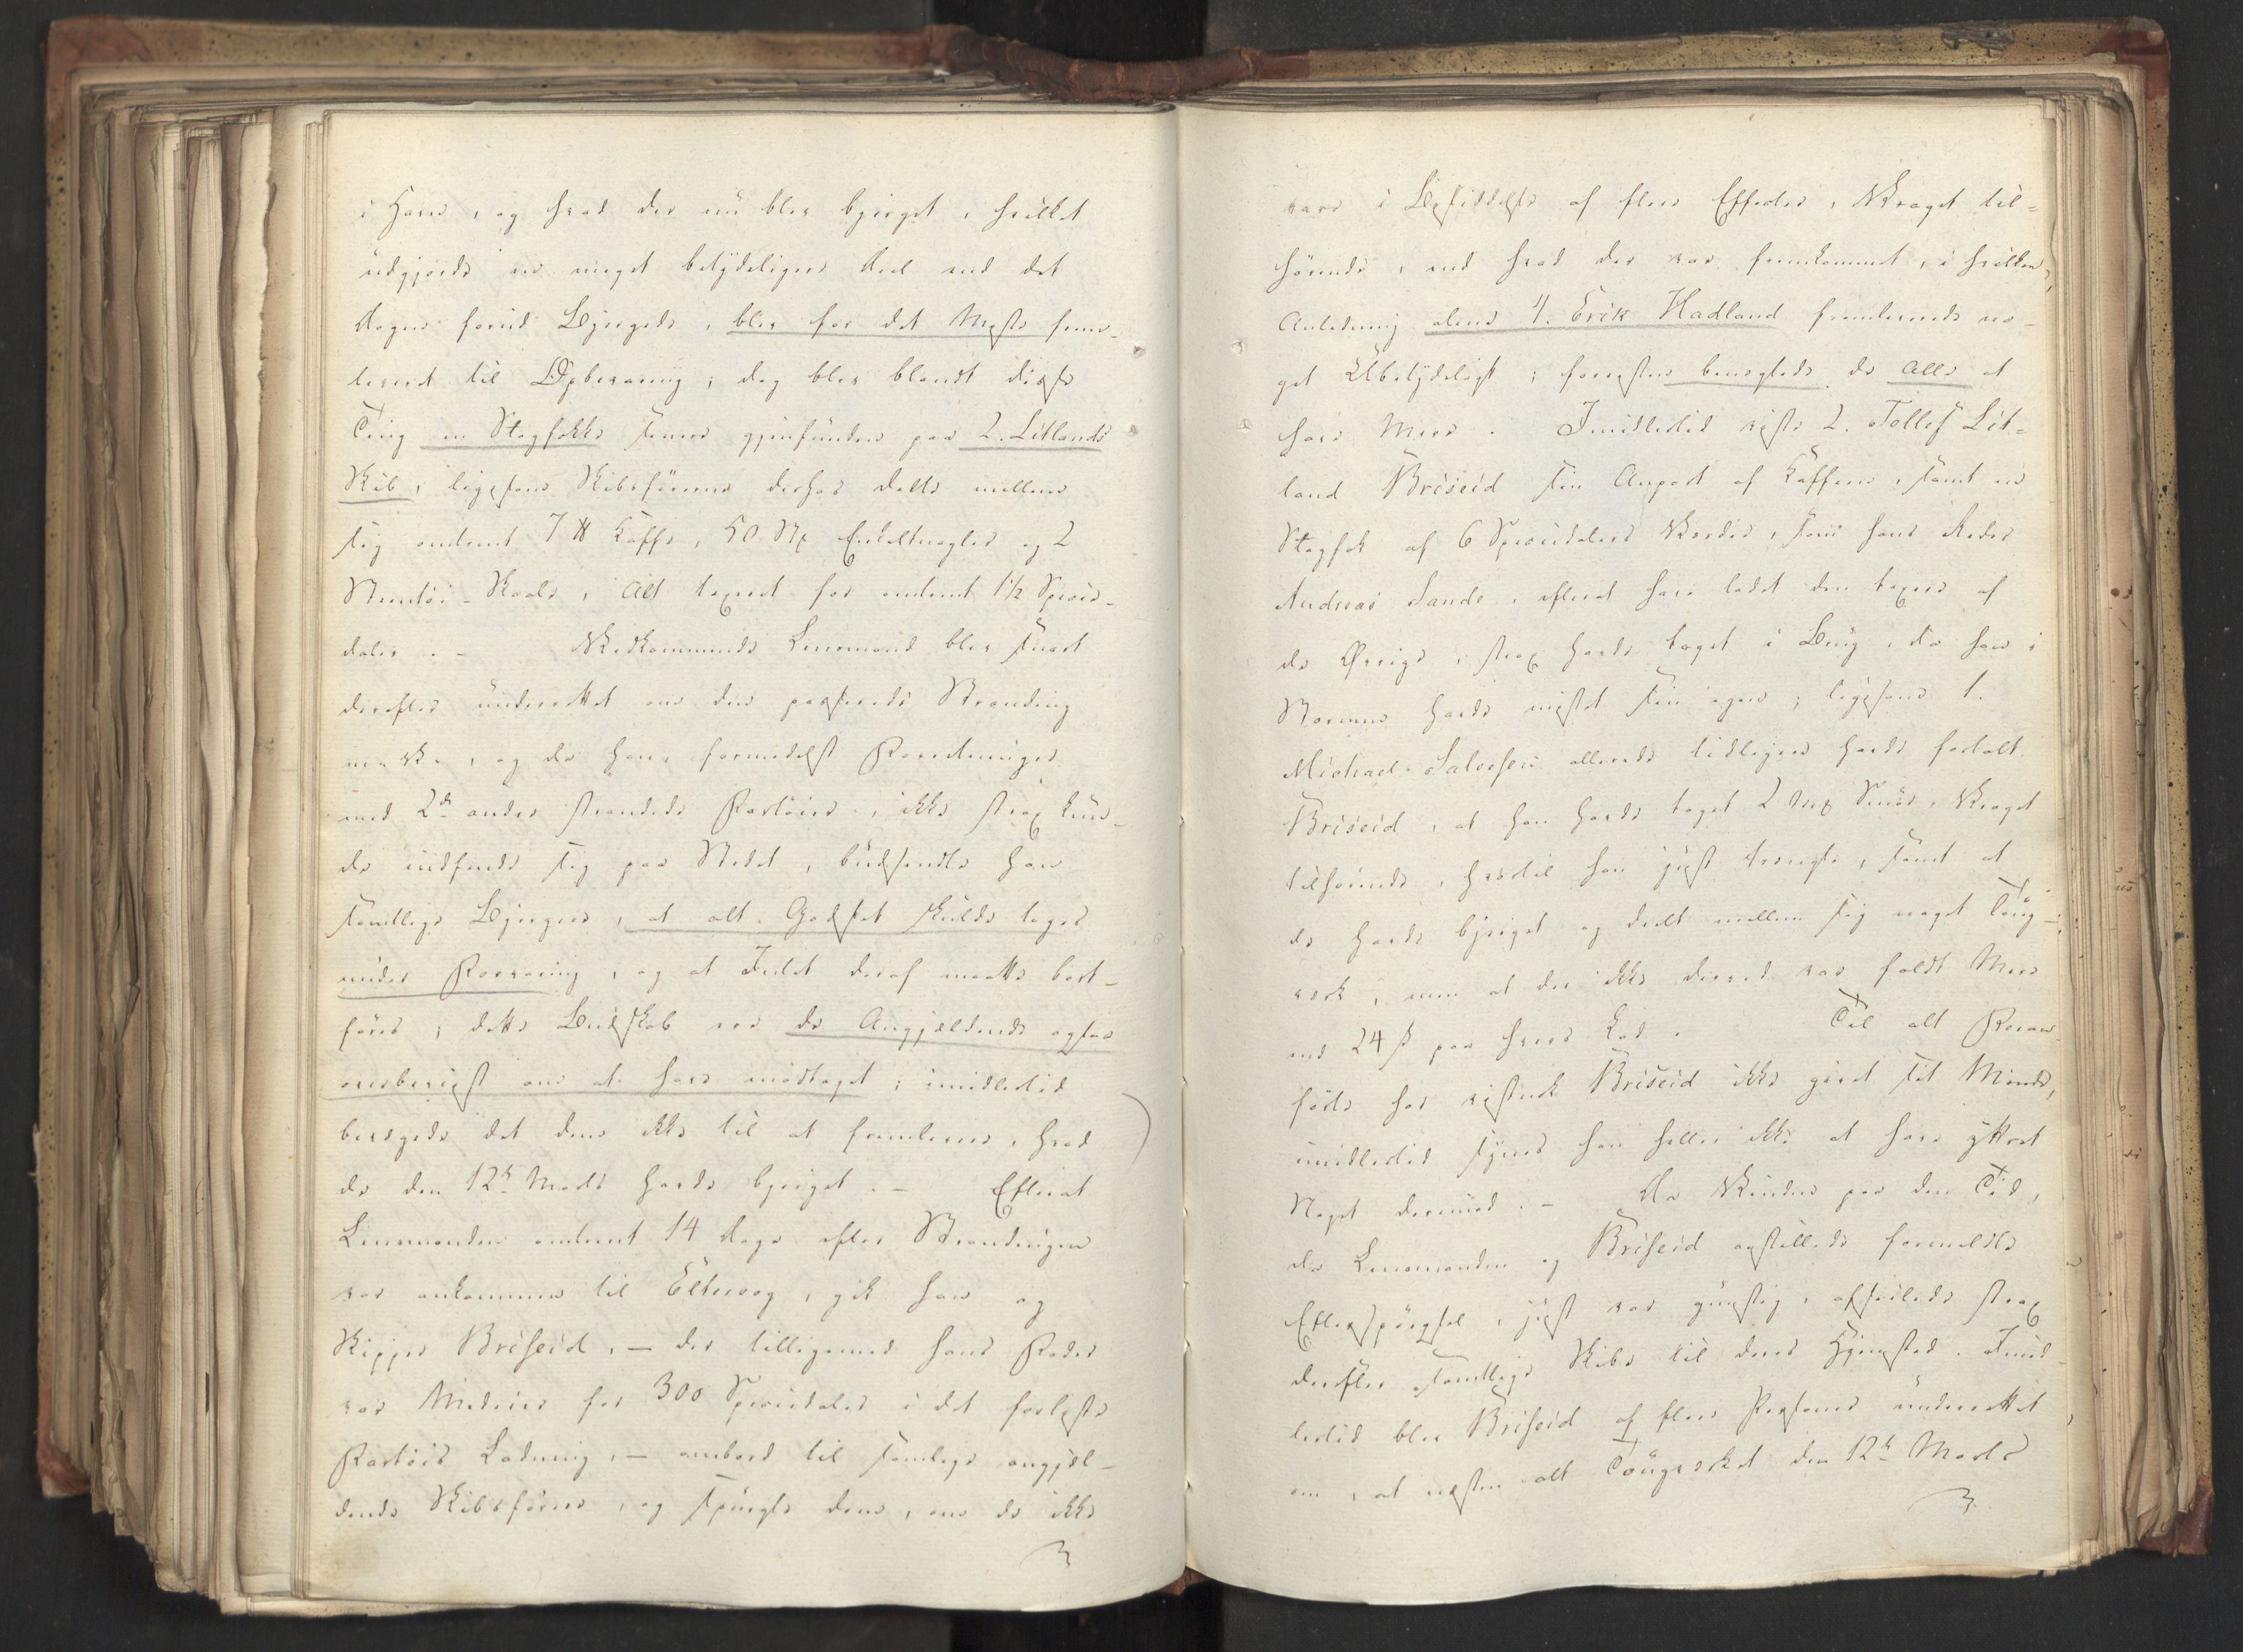 i Havn, og hvad der nu blev bjerget, hvilket
udgjorde en meget betydeligere Deel end det
Dagen forud Bjergede, blev for det Meste frem-
leveret til Opbevaring; dog blev blandt disse
Ting en Stagfokke senere gjenfunden paa 2. Litlands
Skib, ligesom Skibsførerne derhos deelte mellem
sig omtrent 7 ℔ Kaffe, 50 Stk Enkeltnagler og 2
Steentøi-Skaale, Alt taxeret for omtrent 1½ Specie-
daler. - Vedkommende Lensmand blev snart
derefter underrettet om den passerede Stranding
m. V., og da han, formedelst Forretninger
med 2de andre strandede Fartøier, ikke strax kun-
de indfinde sig paa Stedet, budsendte han
samtlige Bjergere, at alt Godset skulde tages
under Forvaring, og at Intet deraf maatte bort-
føres; dette Budskab ere de Angjeldende ogsaa
overbeviist om at have modtaget; imidlertid
bevægede det dem ikke til at fremlevere, hvad
de den 12te Marts havde bjerget. - Efterat
Lensmanden omtrent 14 Dage efter Strandingen
var ankommen til Eltervaag, gik han og
Skipper Briseid, - der tilligemed hans Fader
var Medeier for 300 Speciedaler i det forliste
Fartøis Ladning, - ombord til samtlige angjel-
dende Skibsførere, og spurgte dem, om de ikke
vare i Besiddelse af flere Effecter, Vraget til-
hørende, end hvad der var fremkommet, i hvilken
Anledning alene 4. Erik Hadland fremleverede no-
get Ubetydeligt; forresten benegtede de Alle at
have Mere. Imidlertid viste 2. Tollef Lit-
land Briseid sin Anpart af Kaffeen, samt en
Stagfok af 6 Speciedalers Værdie, som hans Reder
Andreas Sande, efterat have ladet den taxere af
de Øvrige, strax havde taget i Brug, da han i
Stormen havde mistet sin egen; ligesom 1.
Michael Salvesen allerede tidligere havde fortalt
Briseid, at han havde taget 2 Stk Smør, Vraget
tilhørende, hvortil han just trængte, samt at
de havde bjerget og deelt mellem sig noget Toug-
værk, men at der ikke derved var faldt Mere
end 24 ß paa hver Lod. Til alt Foran-
førte har vistnok Briseid ikke givet sit Minde,
imidlertid synes han heller ikke at have yttret
Noget derimod. - Da Vinden paa den Tid,
da Lensmanden og Briseid anstillede formeldte
Efterspørgsel, just var gunstig, afseilede strax
derefter samtlige Skibe til deres Hjemsted. Imid-
lertid blev Briseid af flere Personer underrettet
om, at næsten alt Tougværket den 12te Marts